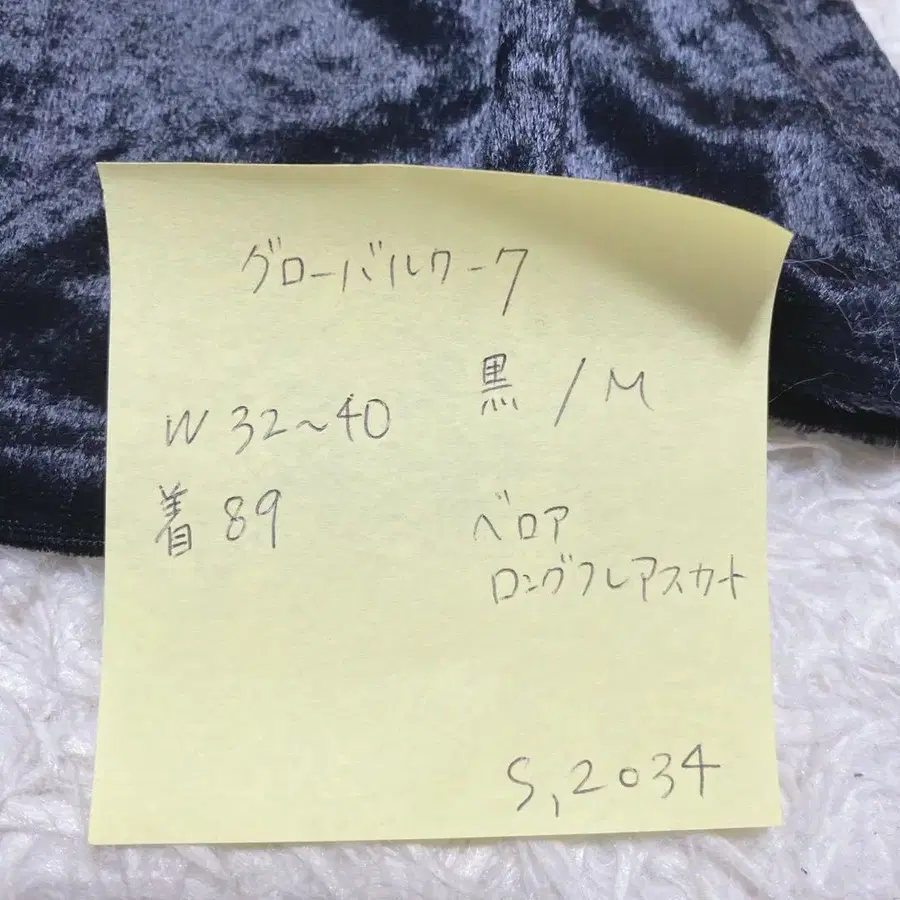 グローバルワーク
黒 / M
W 32~40
着 89
ベロア
ロングフレアスカート
S,2034